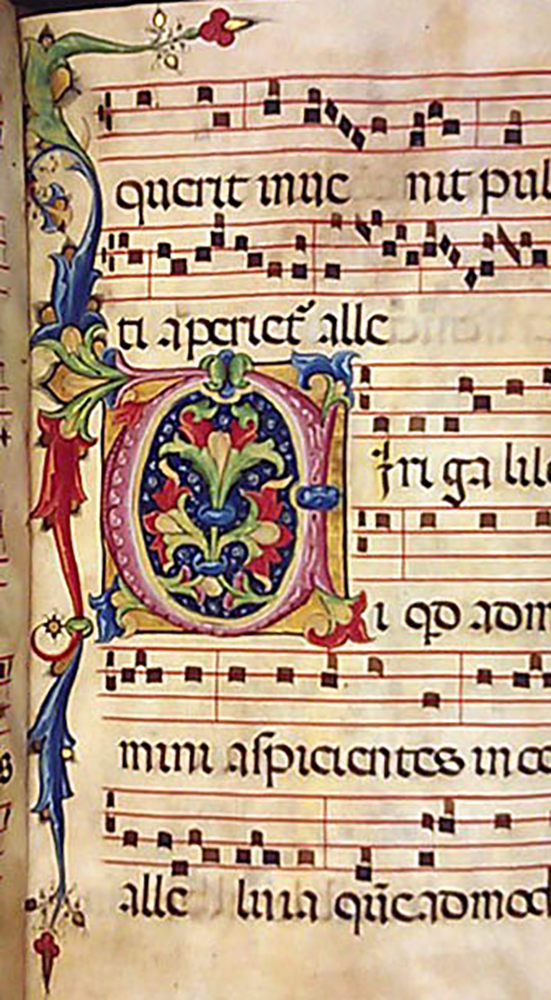 querit inue nit pul
ti aperiet᷑ alle
Viri galile
i qd adm
mini aſpicientes in ce
alle luia qūeadmod